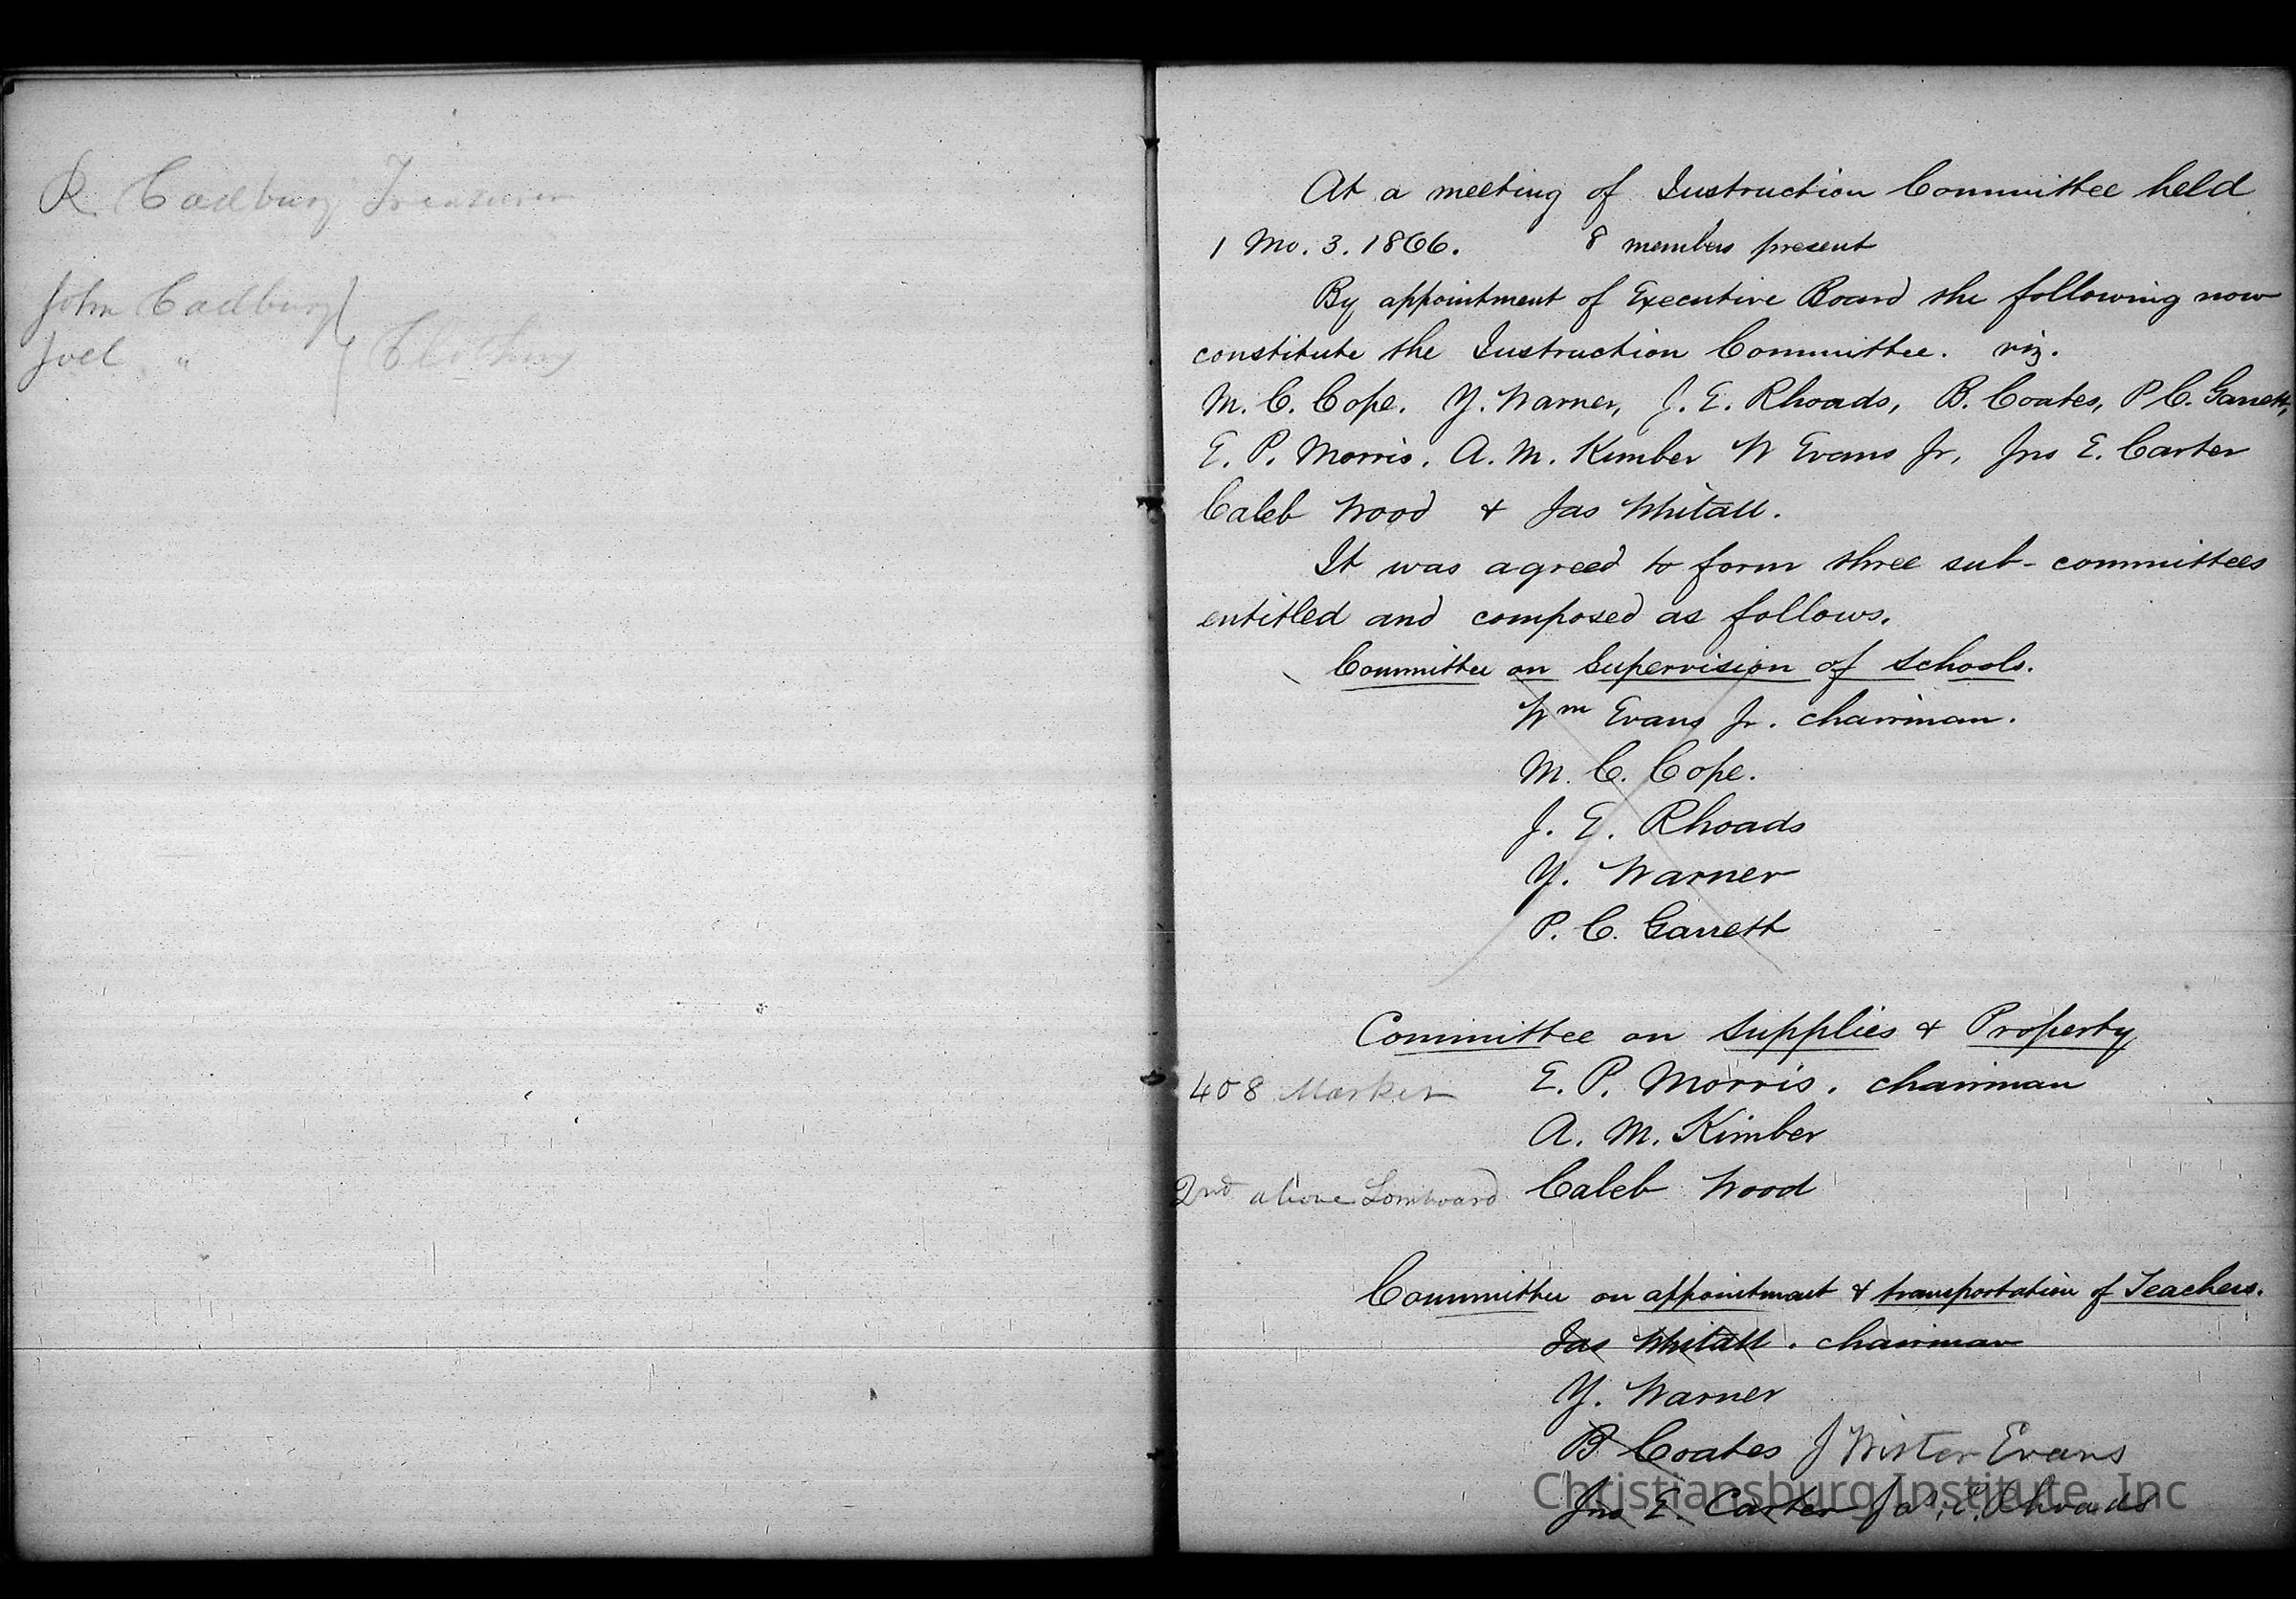 R. Cadbury Treasurer
John Cadbury
Joel " Clothing
At a meeting of Instruction Committee held
1 Mo. 3. 1866. 8 members present
By appointment of Executive Board the following now
constitute the Instruction Committee. viz.
M. C. Cope. Y. Warner, J. E. Rhoads, B. Coates, P. C. Garrett,
E. P. Morris. A. M. Kimber W Evans Jr, Jno E. Carter
Caleb Wood & Jas Whitall.
It was agreed to form three sub-committees
entitled and composed as follows.
Committee on Supervision of Schools.
Wm Evans Jr. chairman.
M. C. Cope.
J. E. Rhoads
Y. Warner
P. C. Garrett
Committee on Supplies & Property
408 Market E. P. Morris. chairman
A. M. Kimber
2nd above Lombard Caleb Wood
Committee on appointment & transportation of Teachers.
Jas Whitall. chairman
Y. Warner
B Coates J Wister Evans
Jno E. Carter Jas. E. Rhoads
Christiansburg Institute, Inc